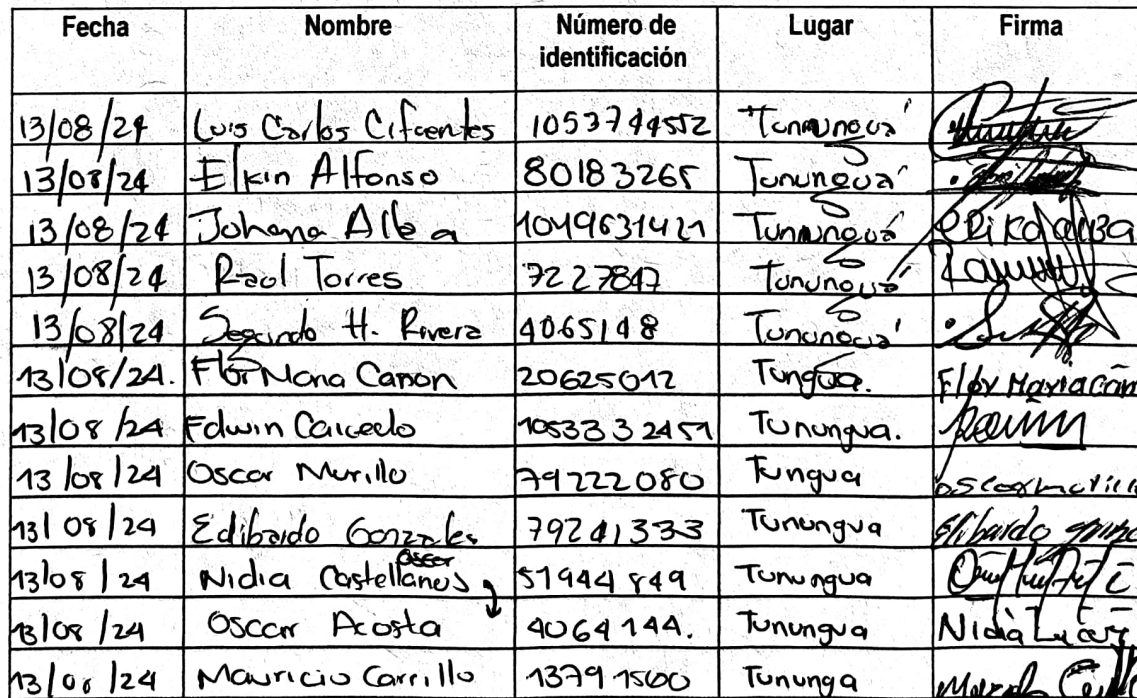 Fecha Nombre Número de identificación Lugar Firma
13/08/24 Luis Carlos Cifuentes 1053744552 Tununguá
13/08/24 Elkin Alfonso 80183265 Tununguá
13/08/24 Johana Alba 1049631421 Tununguá
13/08/24 Raol Torres 7227847 Tununguá
13/08/24 Segundo H. Rivera 4065148 Tununguá
13/08/24. Flor Maria Canon 20625012 Tungua. Flor Maria can
13/08/24 Edwin Caicedo 1053332451 Tunungua.
13/08/24 Oscar Murillo 79222080 Tungua
13/08/24 Edibardo Gonzales 79241333 Tunungua
Oscar
13/08/24 Nidia Castellanos 51944849 Tunungua
13/08/24 Oscar Acosta 4064144. Tunungua Nidia
13/08/24 Mauricio Carrillo 13791500 Tununga